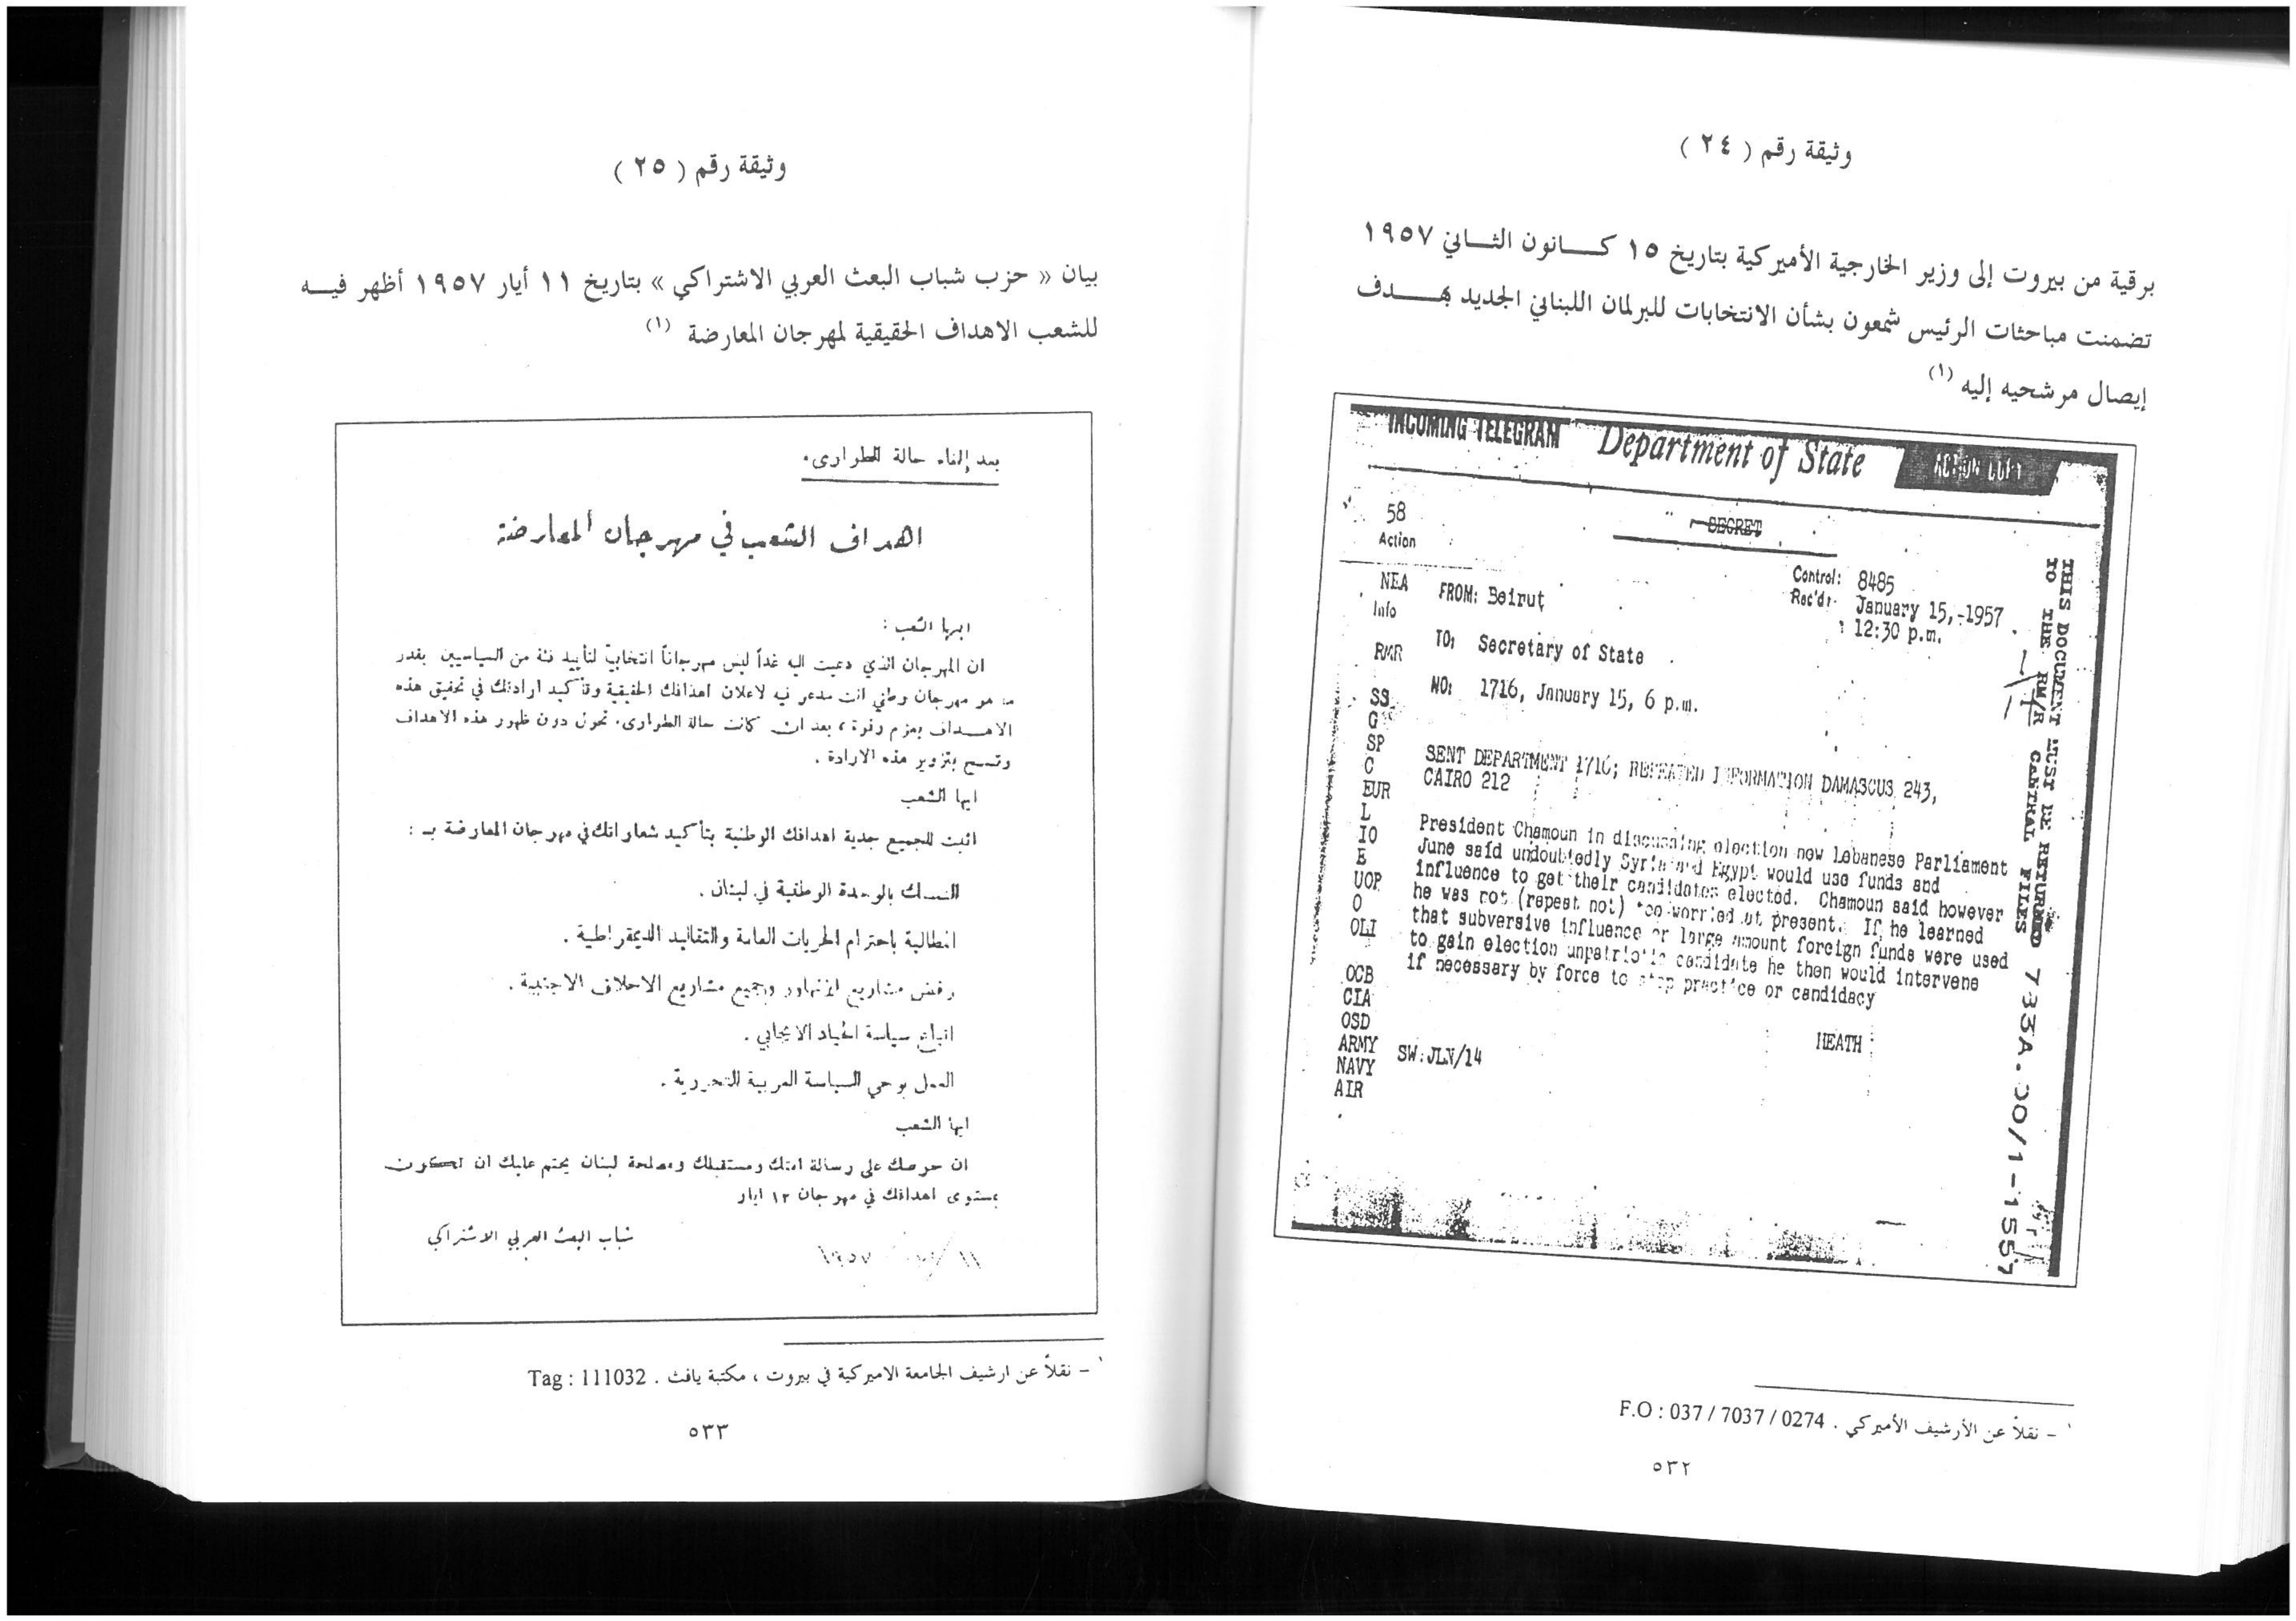 وثيقة رقم ( ٢٤ )
برقية من بيروت إلى وزير الخارجية الأميركية بتاريخ ١٥ كـــانون الثـــاني ١٩٥٧
تضمنت مباحثات الرئيس شمعون بشأن الانتخابات للبرلمان اللبناني الجديد بهـــدف
إيصال مرشحيه إليه (١)
INCOMING TELEGRAM Department of State ACTION COPY
58
SECRET
Action
Control: 8485
NEA FROM: Beirut
Rec'd: January 15, 1957
Info
12:30 p.m.
TO: Secretary of State
RMR
NO: 1716, January 15, 6 p.m.
SS
G
SP
SENT DEPARTMENT 1716; REPEATED INFORMATION DAMASCUS 243,
C
CAIRO 212
EUR
L
President Chamoun in discussing election new Lebanese Parliament
IO
June said undoubtedly Syria and Egypt would use funds and
E
influence to get their candidates elected. Chamoun said however
UOP
he was not (repeat not) too worried at present. If he learned
O
that subversive influence or large amount foreign funds were used
OLI
to gain election unpatriotic candidate he then would intervene
if necessary by force to stop practice or candidacy
OCB
CIA
OSD
HEATH
ARMY
SW:JLN/14
NAVY
AIR
THIS DOCUMENT MUST BE RETURNED
TO THE RM/R CENTRAL FILES
733A.00/1-1557
١ – نقلاً عن الأرشيف الأميركي . F.O : 037 / 7037 / 0274
٥٣٢
وثيقة رقم ( ٢٥ )
بيان « حزب شباب البعث العربي الاشتراكي » بتاريخ ١١ أيار ١٩٥٧ أظهر فيـــه
للشعب الاهداف الحقيقية لمهرجان المعارضة (١)
بعد إلغاء حالة الطوارىء
اهداف الشعب في مهرجان المعارضة
ايها الشعب :
ان المهرجان الذي دعيت اليه غداً ليس مهرجاناً انتخابيّ لتأييد فئة من السياسيين بقدر
ما هو مهرجان وطني انت مدعو فيه لاعلان اهدافك الحقيقية وتأكيد ارادتك في تحقيق هذه
الاهــداف بعزم وقوة ، بعد ان كانت حالة الطوارىء تحول دون ظهور هذه الاهداف
وتسمح بتزوير هذه الارادة .
ايها الشعب
اثبت للجميع جدية اهدافك الوطنية بتأكيد شعاراتك في مهرجان المعارضة بـ :
التمسك بالوحدة الوطنية في لبنان .
المطالبة باحترام الحريات العامة والتقاليد الديمقراطية .
رفض مشاريع ايزنهاور وجميع مشاريع الاحلاف الاجنبية .
اتباع سياسة الحياد الايجابي .
العمل بوحي السياسة العربية التحررية .
ايها الشعب
ان حرصك على رسالة امتك ومستقبلك ومصلحة لبنان يحتم عليك ان تكون
بمستوى اهدافك في مهرجان ١٢ ايار
شباب البعث العربي الاشتراكي
١ – نقلاً عن ارشيف الجامعة الاميركية في بيروت ، مكتبة يافث . Tag : 111032
٥٣٣